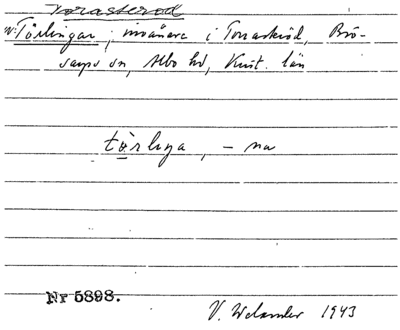 Torasteröd
N: Törlingar, invånare i Torrasteröd, Brö-
sarps sn, Albo hd, Krist. län
törlıŋa, – na
Nr 5898.
V. Welander 1943